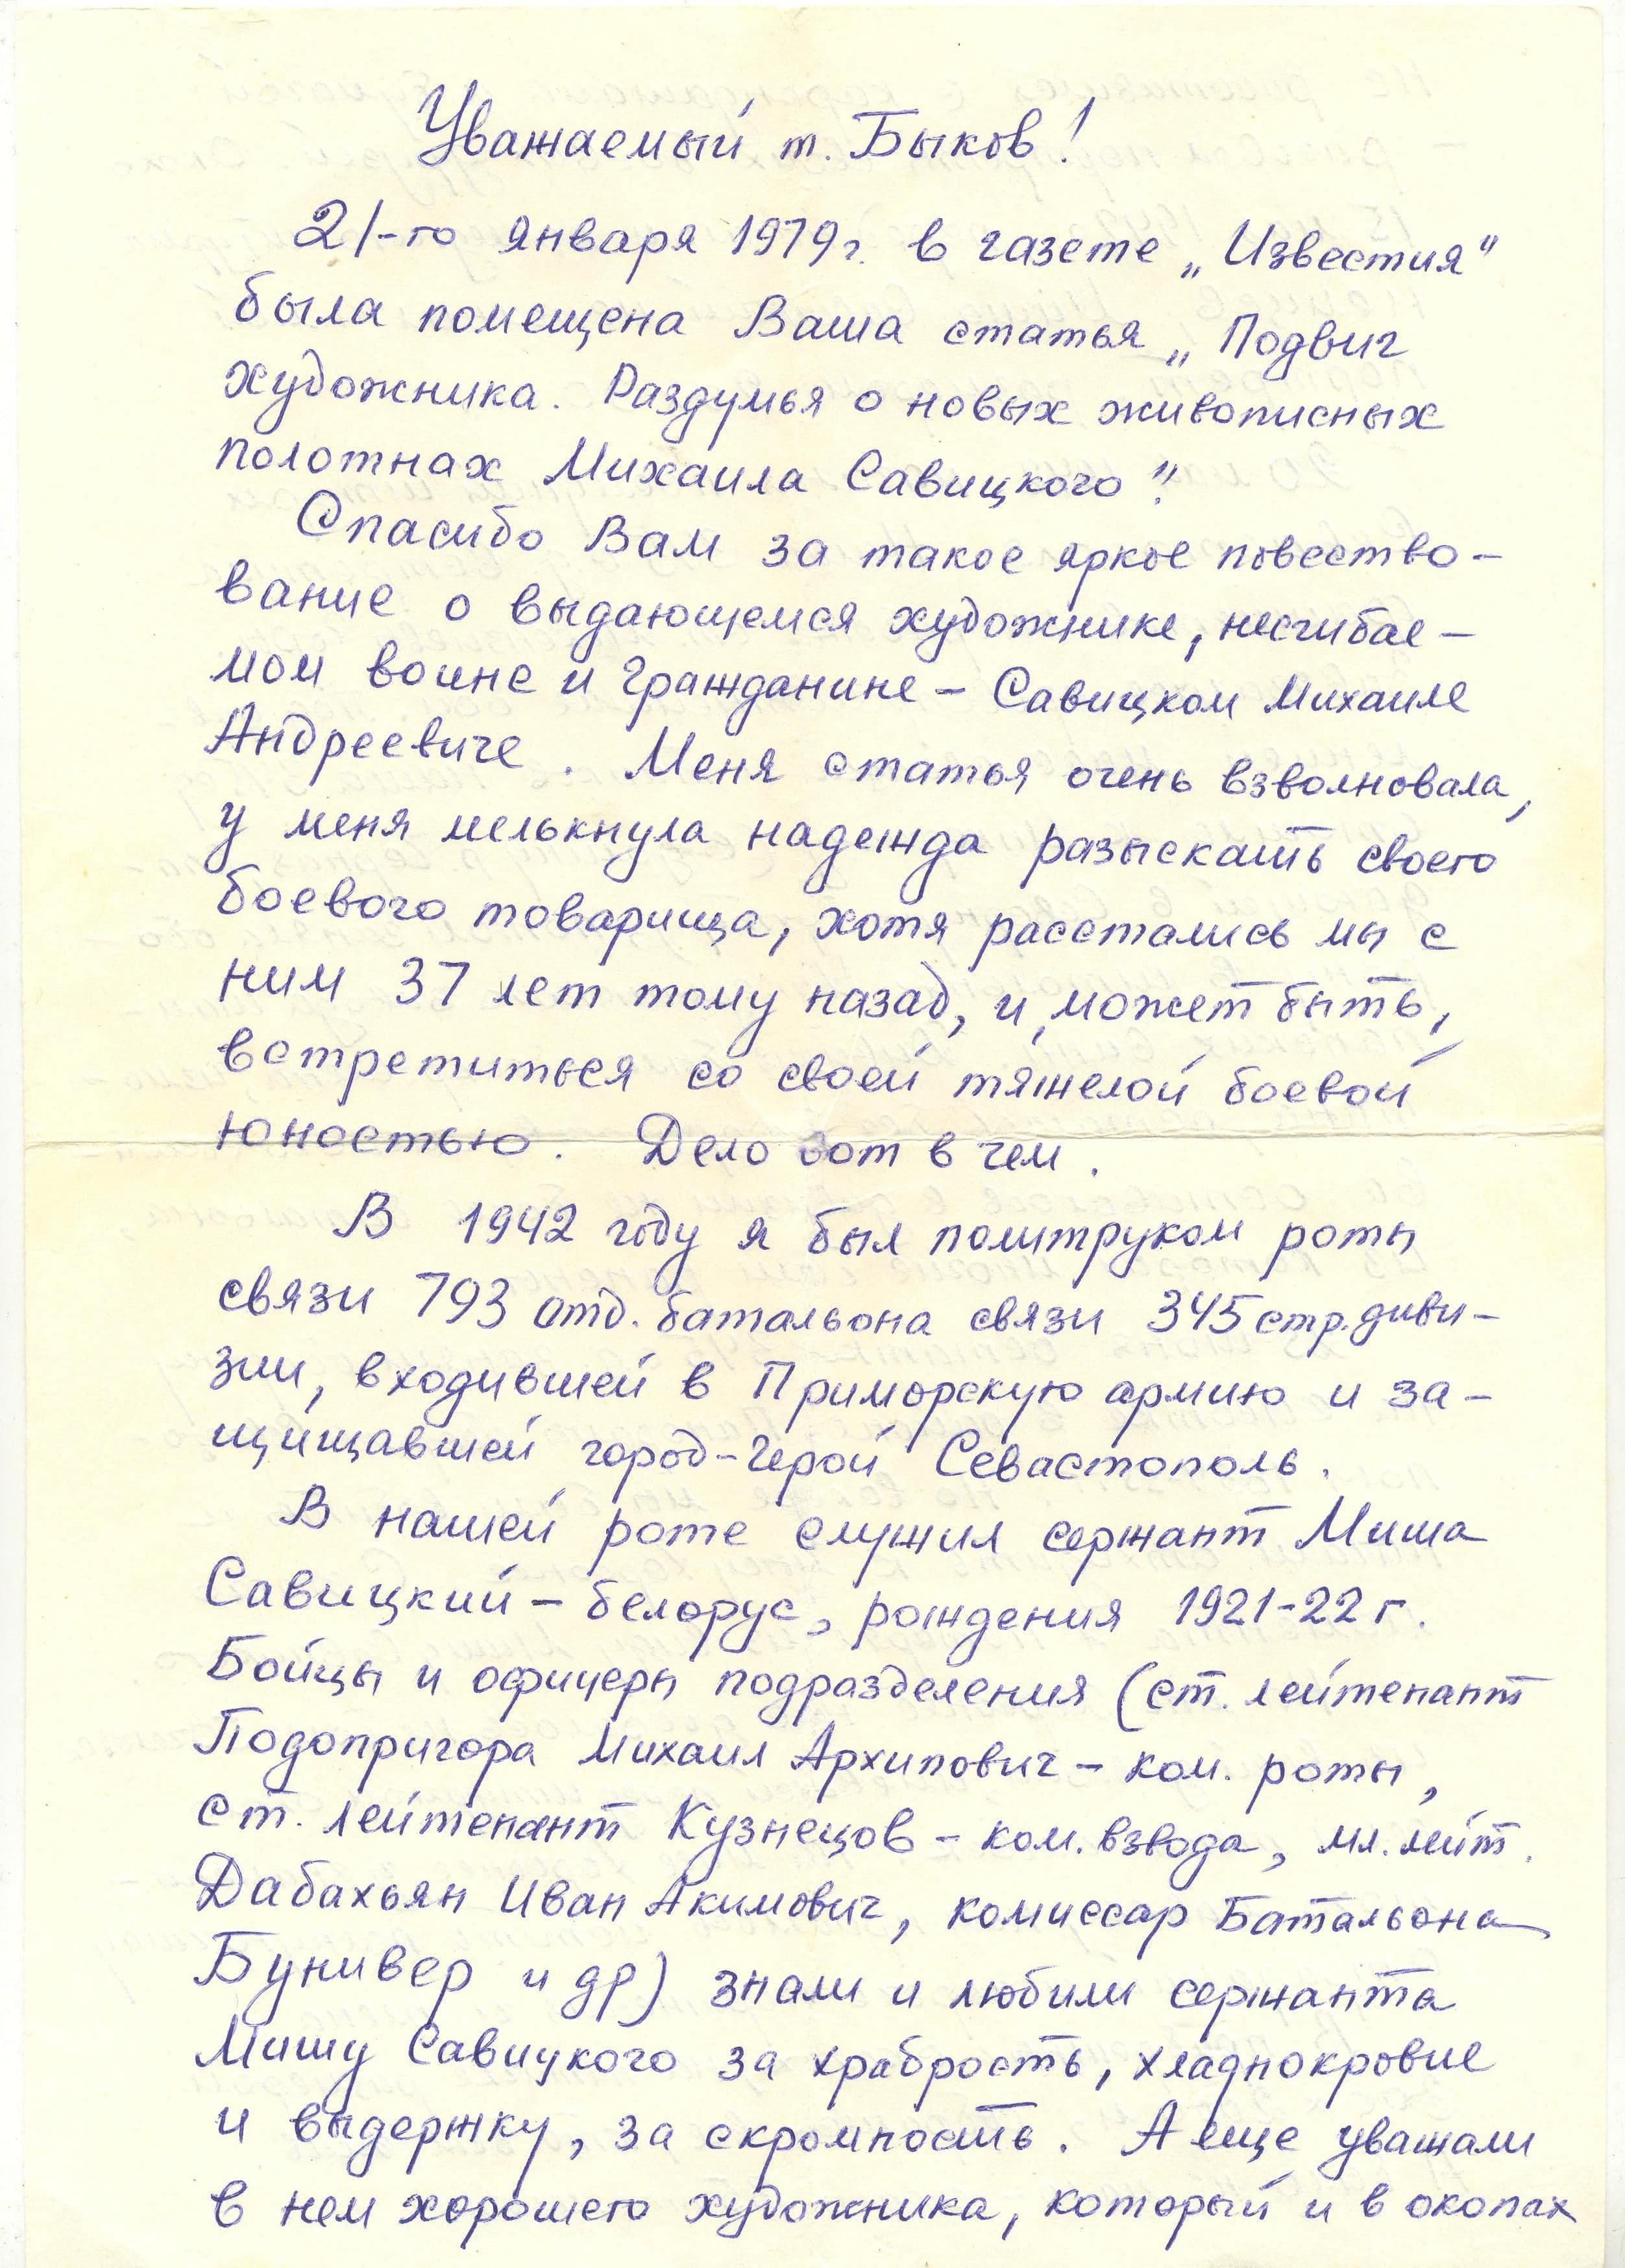 Уважаемый т. Быков!
21-го января 1979г. в газете „Известия"
была помещена Ваша статья „Подвиг
художника. Раздумья о новых живописных
полотнах Михаила Савицкого".
Спасибо Вам за такое яркое повество-
вание о выдающемся художнике, несгибае-
мом воине и гражданине – Савицком Михаиле
Андреевиче. Меня статья очень взволновала,
у меня мелькнула надежда разыскать своего
боевого товарища, хотя расстались мы с
ним 37 лет тому назад, и, может быть,
встретиться со своей тяжелой боевой
юностью. Дело вот в чем.
В 1942 году я был политруком роты
связи 793 отд. батальона связи 345 стр. диви-
зии, входившей в Приморскую армию и за-
щищавшей город-герой Севастополь.
В нашей роте служил сержант Миша
Савицкий – белорус, рождения 1921-22 г.
Бойцы и офицеры подразделения (ст. лейтенант
Подопригора Михаил Архипович – ком. роты,
ст. лейтенант Кузнецов – ком. взвода, мл. лейт.
Дабахьян Иван Акимович, комиссар Батальона
Бунивер и др) знали и любили сержанта
Мишу Савицкого за храбрость, хладнокровие
и выдержку, за скромность. А еще уважали
в нем хорошего художника, который и в окопах